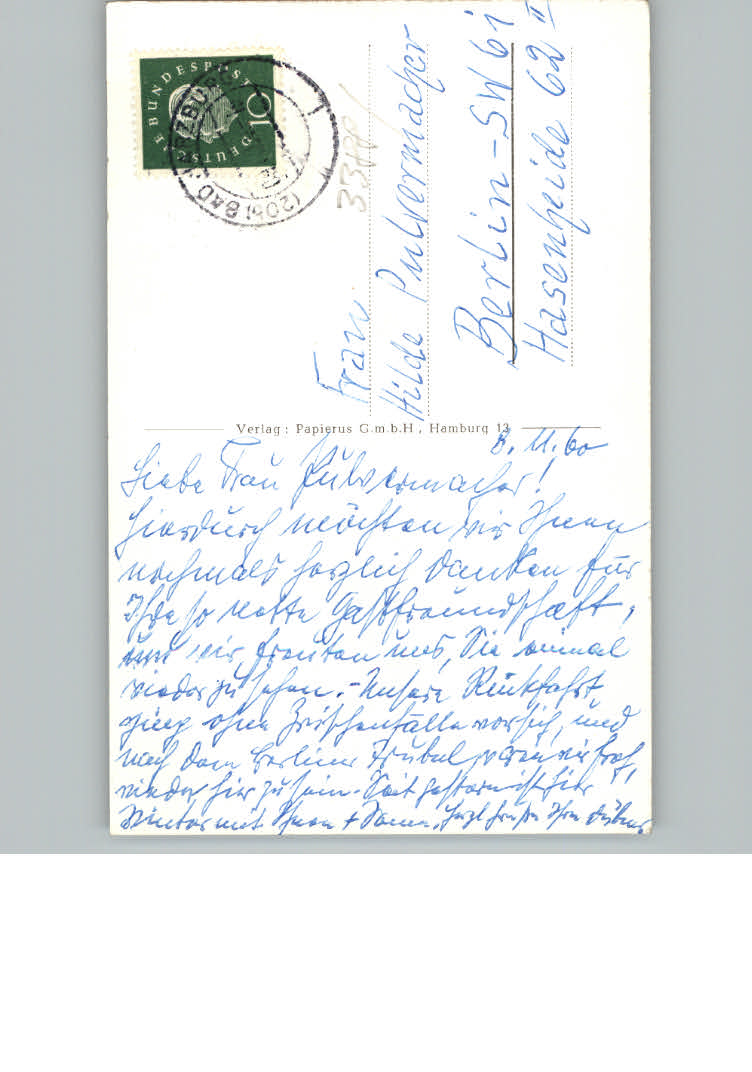 DEUTSCHE BUNDESPOST
10
(20b) BAD HARZBURG
3388
Frau
Hilde Pulvermacher
Berlin-SW 61
Hasenheide 62 II
Verlag: Papierus G.m.b.H., Hamburg 13
8.11.60
Liebe Frau Pulvermacher!
Hierdurch möchten wir Ihnen
nochmals herzlich danken für
Ihre so nette Gastfreundschaft,
und wir freuten uns, Sie einmal
wieder zu sehen. - Unsere Rückfahrt
ging ohne Zwischenfälle vor sich, und
nach dem Berliner Trubel waren wir froh,
wieder hier zu sein. - Seit gestern ist hier
Winter mit Schnee + Sonne. Herzl. Ihre